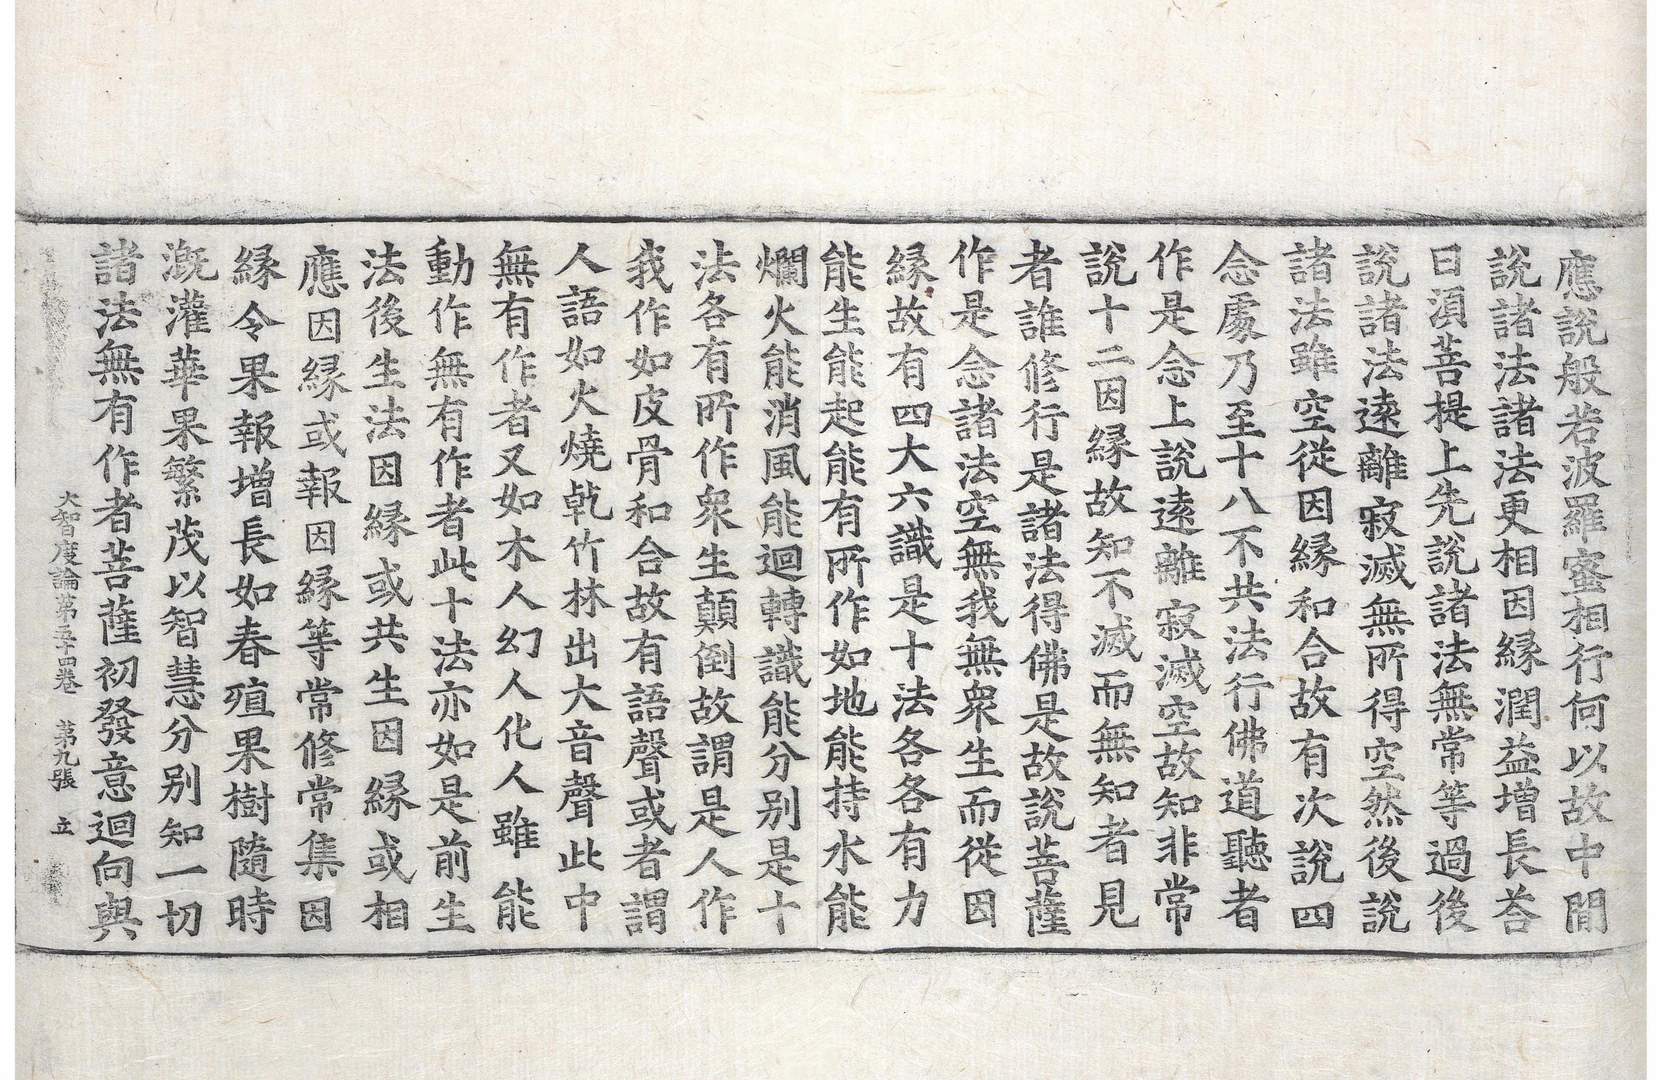 應說般若波羅蜜相行何以故中間
說諸法諸法更相因縁潤益增長荅
曰湏菩提上先說諸法無常等過後
說諸法遠離寂滅無所得空然後說
諸法雖空從因縁和合故有次說四
念處乃至十八不共法行佛道聽者
作是念上說遠離寂滅空故知非常
說十二因縁故知不滅而無知者見
者誰修行是諸法得佛是故說菩薩
作是念諸法空無我無衆生而從因
縁故有四大六識是十法各各有力
能生能起能有所作如地能持水能
爛火能消風能迴轉識能分别是十
法各有所作衆生顛倒故謂是人作
我作如皮骨和合故有語聲或者謂
人語如火燒乹竹林出大音聲此中
無有作者又如木人幻人化人雖能
動作無有作者此十法亦如是前生
法後生法因縁或共生因縁或相
應因縁或報因縁等常修常集因
縁令果報增長如春殖果樹隨時
溉灌華果繁茂以智慧分别知一切
諸法無有作者菩薩初發意迴向與
大智度論第五十四卷　第九張　立